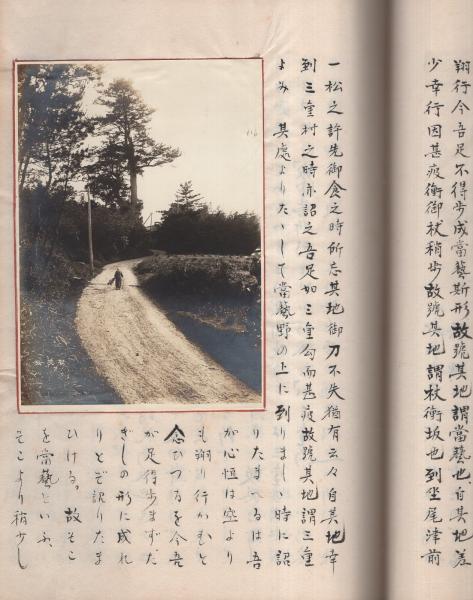 翔行今吾足不得歩成當藝斯形故號其地謂當藝也、自其地差
少幸行因甚疲衝御杖稍歩故號其地謂杖衝坂也到坐尾津前
一松之許先御食之時所忘其地御刀不失猶有云々自其地幸
到三重村之時亦詔之吾足如三重勾而甚疲故號其地謂三重
よみ 其處よりたゝして當藝野の上に到りましゝ時に詔
りたまへるは吾
が心恒は空より
も翔り行かむと
念ひつるを今吾
が足得歩まずた
ぎしの形に成れ
りとぞ詔りたま
ひける。故そこ
を當藝といふ、
そこより稍少し